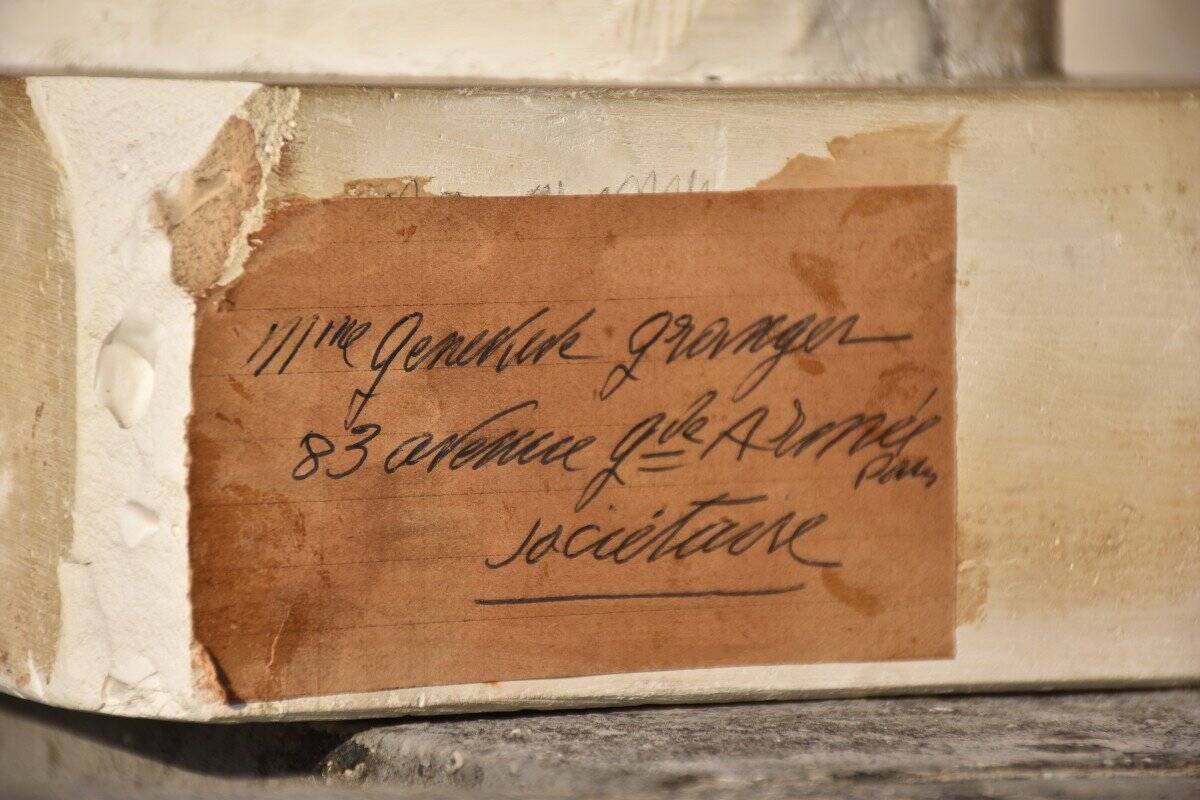 Mme Geneviève Granger
83 avenue gde Armée
Paris
sociétaire